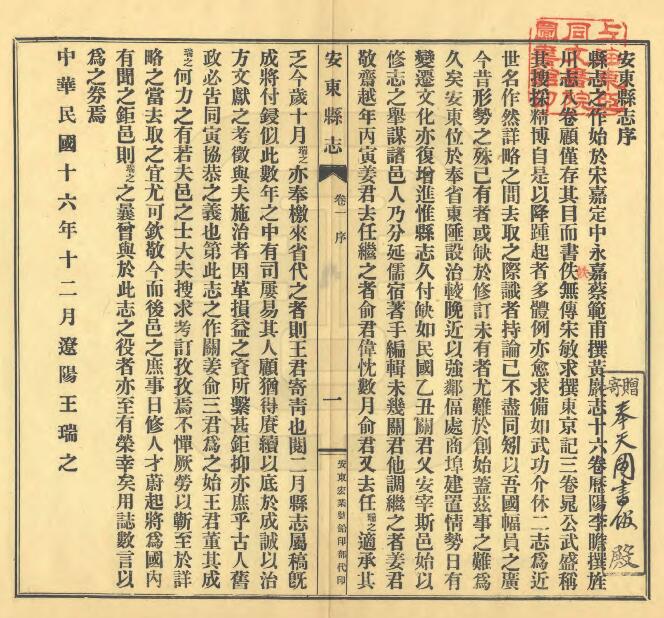 安東縣志序
縣志之作始於宋嘉定中永嘉蔡範甫撰黃巖志十六卷歷陽李瞻撰旌
川志八卷顧僅存其目而書佚無傳宋敏求撰東京記三卷晁公武盛稱
其搜採精博自是以降踵起者多體例亦愈求備如武功介休二志爲近
世名作然詳略之間去取之際識者持論已不盡同矧以吾國幅員之廣
今昔形勢之殊已有者或缺於修訂未有者尤難於創始蓋茲事之難爲
久矣安東位於奉省東陲設治較晚近以強鄰偪處商埠建置情勢日有
變遷文化亦復增進惟縣志久付缺如民國乙丑關君父安宰斯邑始以
修志之舉謀諸邑人乃分延儒宿著手編輯未幾關君他調繼之者姜君
敬齋越年丙寅姜君去任繼之者俞君偉忱數月俞君又去任瑞之適承其
安東縣志
卷一 序
一
安東宏業號鉛印部代印
乏今歲十月瑞之亦奉檄來省代之者則王君寄靑也閱二月縣志屬稿旣
成將付鋟似此數年之中有司屢易其人顧猶得賡續以底於成誠以治
方文獻之考徵與夫施治者因革損益之資所繫甚鉅抑亦庶乎古人舊
政必告同寅協恭之義也第此志之作關姜俞三君爲之始王君董其成
瑞之何力之有若夫邑之士大夫搜求考訂孜孜焉不憚厥勞以蘄至於詳
略之當去取之宜尤可欽敬今而後邑之庶事日修人才蔚起將爲國內
有聞之鉅邑則瑞之之曩曾與於此志之役者亦至有榮幸矣用誌數言以
爲之券焉
中華民國十六年十二月遼陽王瑞之
寄贈
奉天圖書館 殿